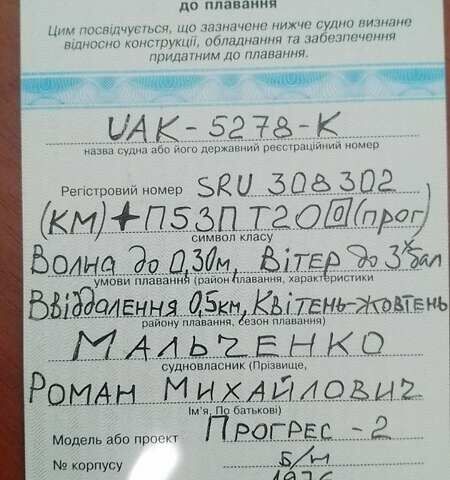 до плавання
Цим посвідчується, що зазначене нижче судно визнане
відносно конструкції, обладнання та забезпечення
придатним до плавання.
UAK-5278-К
назва судна або його державний реєстраційний номер
Регістровий номер SRU 308302
(КМ)+П53ПТ20 (прог)
символ класу
Волна до 0,30м, Вітер до 3х бал
умови плавання (район плавання, характеристики
Ввіддалення 0,5км, Квітень-Жовтень
району плавання, сезон плавання)
Мальченко
судновласник (Прізвище,
Роман Михайлович
Ім'я, По батькові)
Модель або проект Прогрес-2
№ корпусу б/н